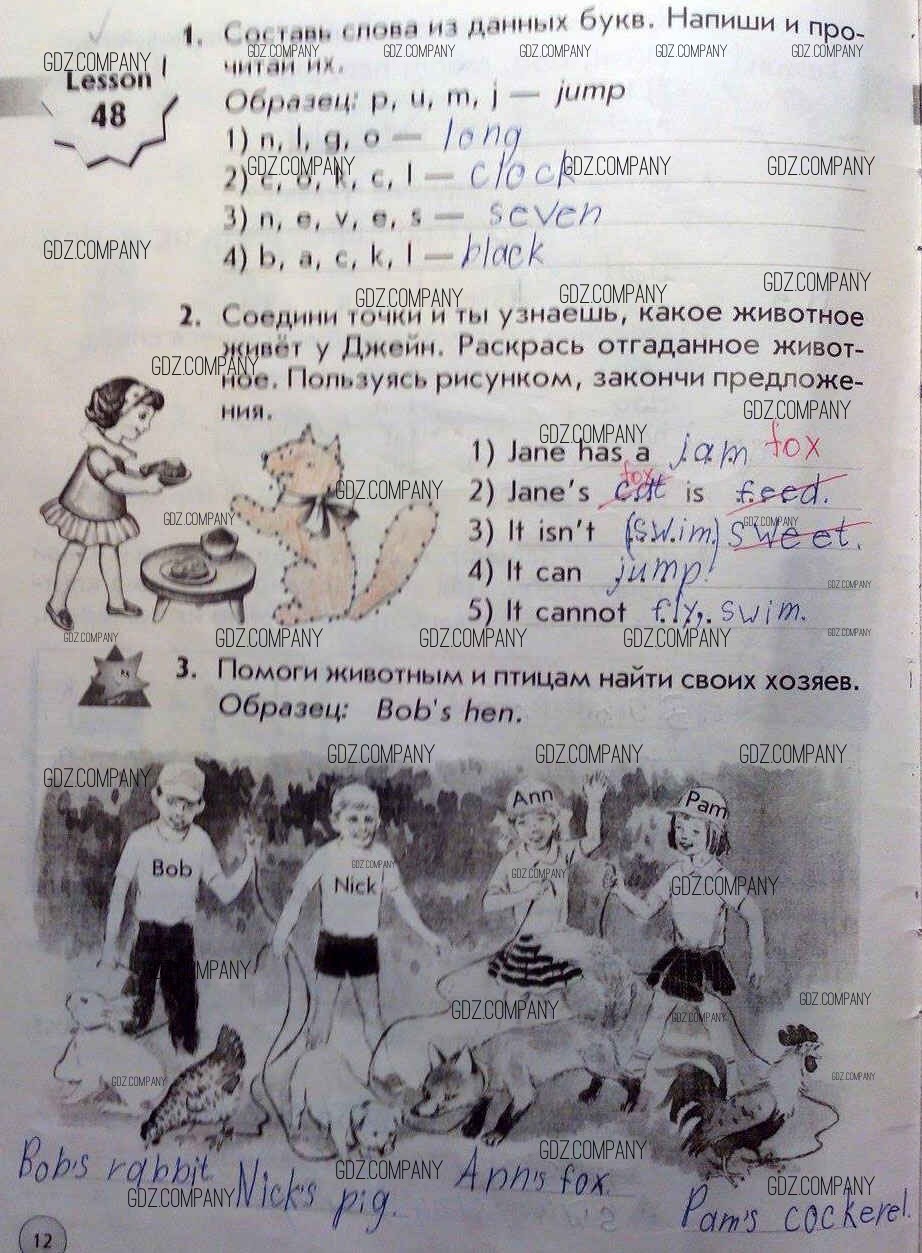 Lesson
48
1. Составь слова из данных букв. Напиши и про-
читай их.
Образец: p, u, m, j — jump
1) n, l, g, o — long
2) c, o, k, c, l — clock
3) n, e, v, e, s — seven
4) b, a, c, k, l — black
2. Соедини точки и ты узнаешь, какое животное
живёт у Джейн. Раскрась отгаданное живот-
ное. Пользуясь рисунком, закончи предложе-
ния.
1) Jane has a jam fox
fox
2) Jane's cat is feed.
3) It isn't (swim) sweet.
4) It can jump.
5) It cannot fly, swim.
3. Помоги животным и птицам найти своих хозяев.
Образец: Bob's hen.
Bob
Nick
Ann
Pam
Bob's rabbit
Nick's pig.
Ann's fox
Pam's cockerel.
12
GDZ.COMPANY